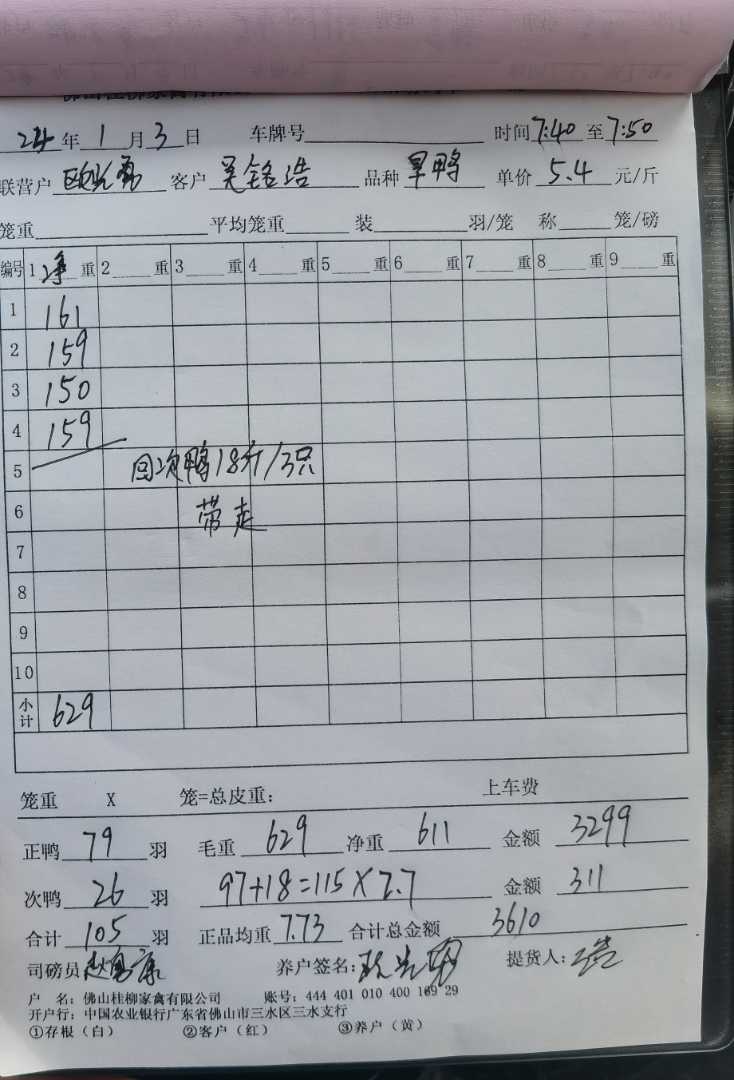 24年1月3日 车牌号 时间7:40至7:50
联营户 客户 吴铭浩 品种 旱鸭 单价 5.4 元/斤
笼重 平均笼重 装 羽/笼 称 笼/磅
编号 1 净重 2 重 3 重 4 重 5 重 6 重 7 重 8 重 9 重
1 161
2 159
3 150
4 159
5 回次鸭18斤/3只
6 带走
7
8
9
10
小计 629
笼重 X 笼=总皮重: 上车费
正鸭 79 羽 毛重 629 净重 611 金额 3299
次鸭 26 羽 97+18=115×2.7 金额 311
合计 105 羽 正品均重 7.73 合计总金额 3610
司磅员 养户签名: 提货人:
户 名: 佛山桂柳家禽有限公司 账号: 444 401 010 400 169 29
开户行: 中国农业银行广东省佛山市三水区三水支行
①存根（白） ②客户（红） ③养户（黄）